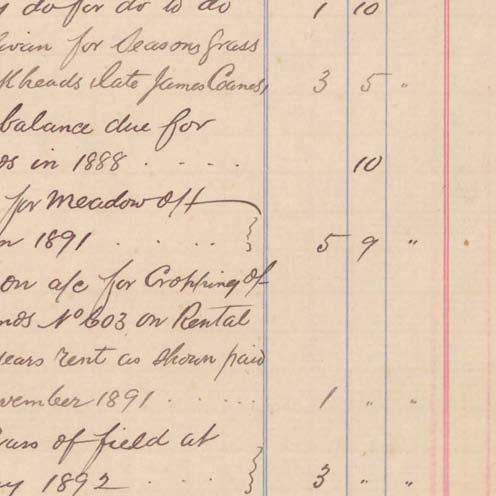 do for do to do 1 10
for Seasons Grass
heads late James Coanes, 3 5 "
balance due for
in 1888 . . . . 10
for Meadow off
in 1891 . . . . 5 9 "
on a/c for Cropping of
No 603 on Rental
years rent as shown paid
November 1891 . . . . 1 " "
Grass of field at
1892 . . . 3 " "